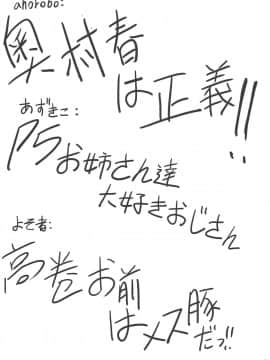 anorobo:
奥村春
は正義!!
あずきこ:
P5お姉さん達
大好きおじさん
よそ者:
高巻お前
はメス豚
だっ!!